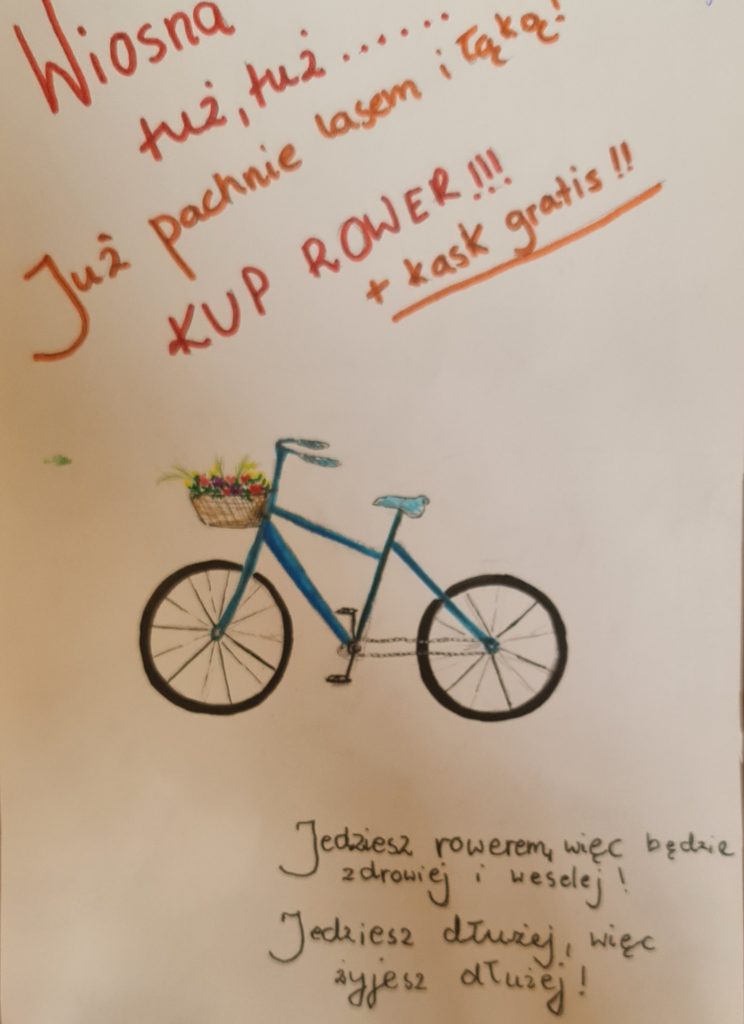 Wiosna
tuż, tuż......
Już pachnie lasem i łąką!
KUP ROWER!!!
+ kask gratis!!
Jedziesz rowerem, więc będzie
zdrowiej i weselej!
Jedziesz dłużej, więc
żyjesz dłużej!